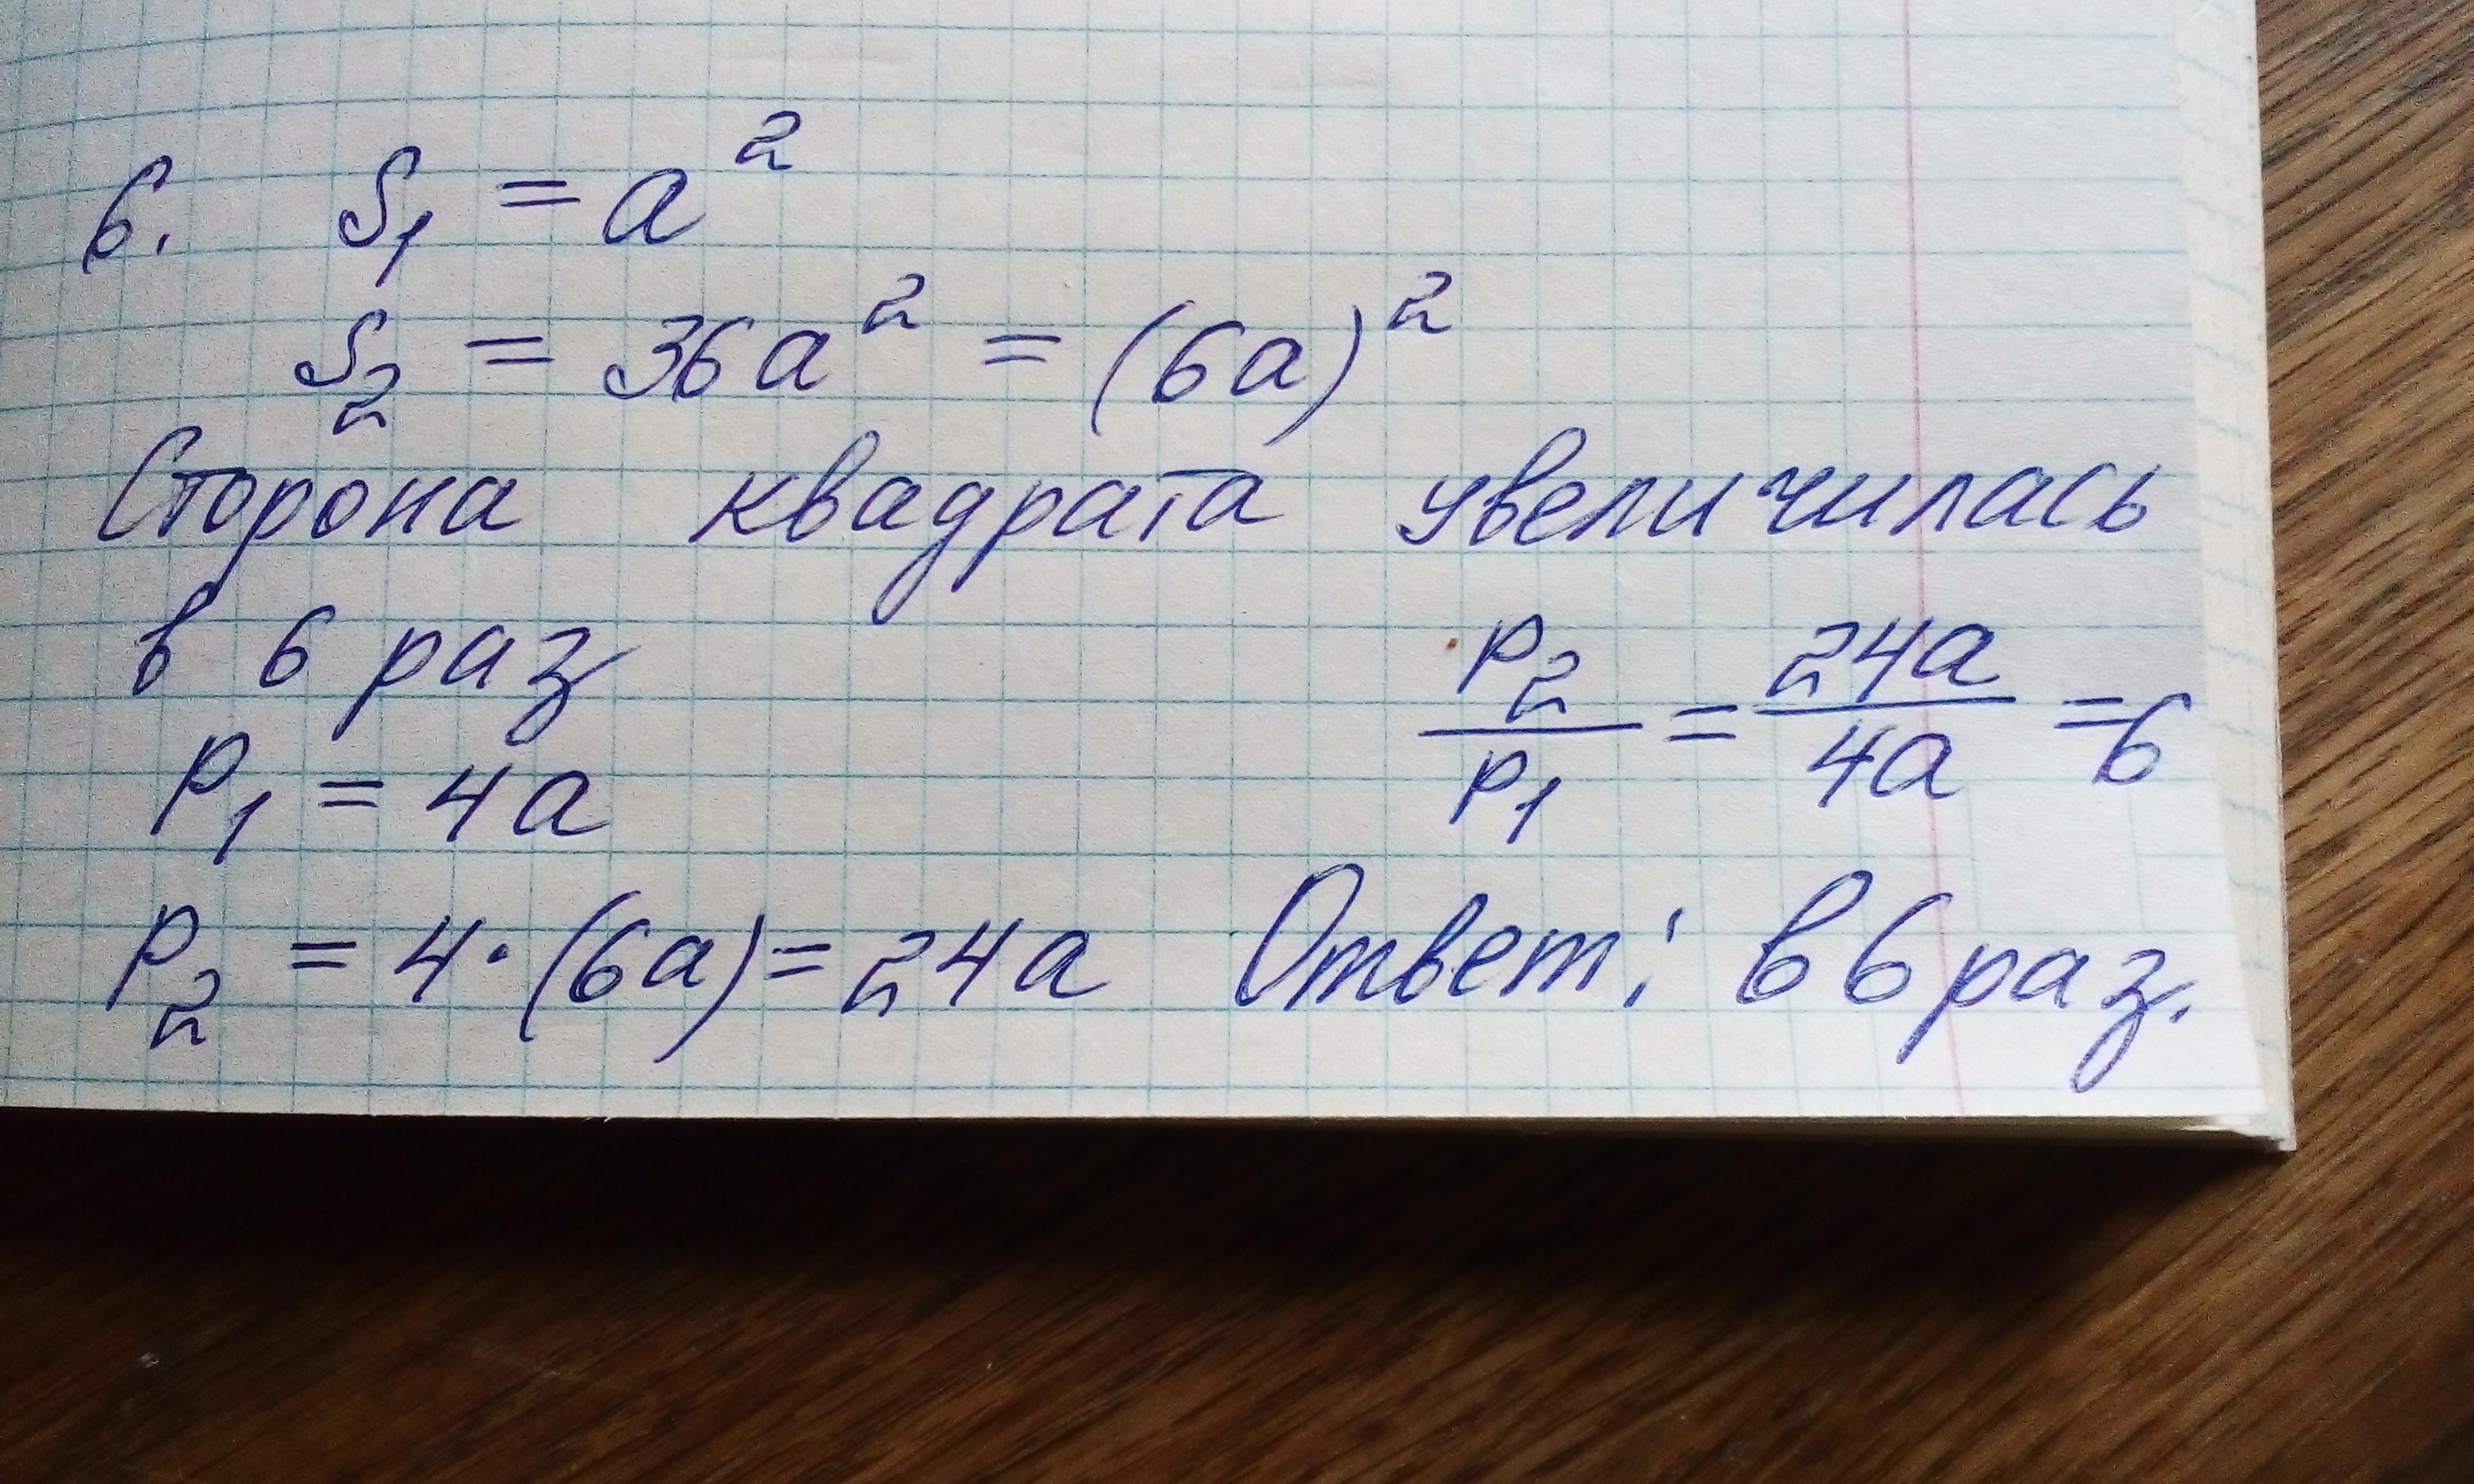 6. S₁ = a²
S₂ = 36a² = (6a)²
Сторона квадрата увеличилась
в 6 раз
P₁ = 4a
P₂ = 4·(6a) = 24a
P₂/P₁ = 24a/4a = 6
Ответ: в 6 раз.